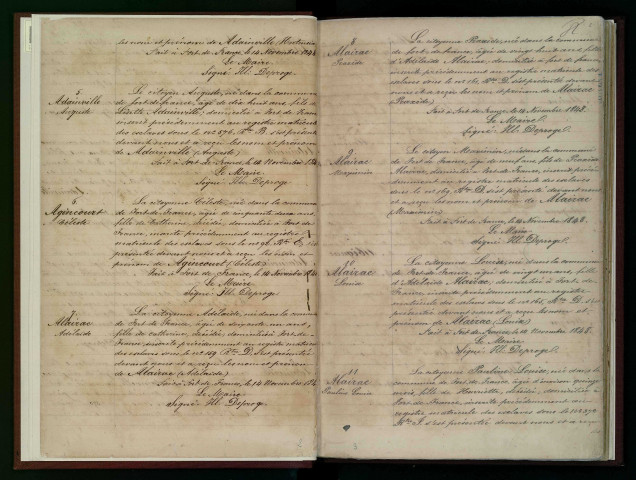 les nom et prénom de Adainville
Fait à Fort de France, le 14 Novembre 1848
Le Maire
Signé: Hl. Deproge
5
Adainville
Auguste
Le citoyen Auguste, né dans la commune
de Fort de france, âgé de dix huit ans, fils de
Adainville, domicilié à Fort de France
inscrit précédemment au registre matricule
des esclaves sous le no 576, B. s'est présenté
devant nous et a reçu les nom et prénom
de Adainville (Auguste)
Fait à Fort de France, le 14 Novembre 1848
Le Maire
Signé: Hl. Deproge
6
Agincourt
Céleste
La citoyenne Céleste, née dans la commune
de Fort de France, âgée de cinquante deux ans,
fille de Catherine, décédée, domiciliée à Fort de
France, inscrite précédemment au registre
matricule des esclaves sous le no 98, C, s'est
présentée devant nous et a reçu les nom et
prénom de Agincourt (Céleste)
Fait à Fort de France, le 14 Novembre 1848
Le Maire
Signé: Hl. Deproge
7
Alairac
Adélaïde
La citoyenne Adélaïde, née dans la commune
de Fort de France, âgée de ans,
fille de Catherine, décédée, domiciliée à Fort de
France, inscrite précédemment au registre matricule
des esclaves sous le no 149, D. s'est présentée
devant nous et a reçu les nom et prénom
de Alairac (Adélaïde)
Fait à Fort de France, le 14 Novembre 1848
Le Maire
Signé: Hl. Deproge
8
Alairac
La citoyenne née dans la commune
de Fort de france, âgée de vingt huit ans, fille
d'Adélaïde Alairac, domiciliée à Fort de france,
inscrite précédemment au registre matricule des
esclaves sous le no s'est présentée devant
nous et a reçu les nom et prénom de Alairac
Fait à Fort de France, le 14 Novembre 1848
Le Maire
Signé: Hl. Deproge
9
Alairac
Le citoyen né dans la commune
de Fort de France, âgé de neuf ans, fils de
Alairac, domicilié à Fort de France, inscrit précé-
demment au registre matricule des esclaves
sous le no D. s'est présenté devant nous
et a reçu les nom et prénom de Alairac
Fait à Fort de France, le 14 Novembre 1848
Le Maire
Signé: Hl. Deproge
10
Alairac
Louisa
La citoyenne Louisa, née dans la commune
de Fort de France, âgée de vingt ans, fille
d'Adélaïde Alairac, domiciliée à Fort de
France, inscrite précédemment au registre
matricule des esclaves sous le no D. s'est
présentée devant nous et a reçu les nom et
prénom de Alairac (Louisa)
Fait à Fort de France, le 14 Novembre 1848
Le Maire
Signé: Hl. Deproge
11
Alairac
Pauline Louise
La citoyenne Pauline Louise, née dans la
commune de Fort de France, âgée d'environ quinze
mois, fille de Henriette, décédée, domiciliée à
Fort de France, inscrite précédemment au
registre matricule des esclaves sous le no
s'est présentée devant nous et a reçu